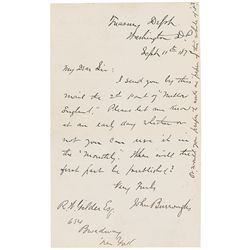 Treasury Dept.
Washington D.C.
Sept 11th 187
My Dear Sir:
I send you by this
mail the 2d part of "Mellow
England." Please let me know
at an early day whether or
not you can use it in
the "Monthly". When will the
first part be published?
Very Truly
John Burroughs
R. W. Gilder Esq.
654
Broadway
New York